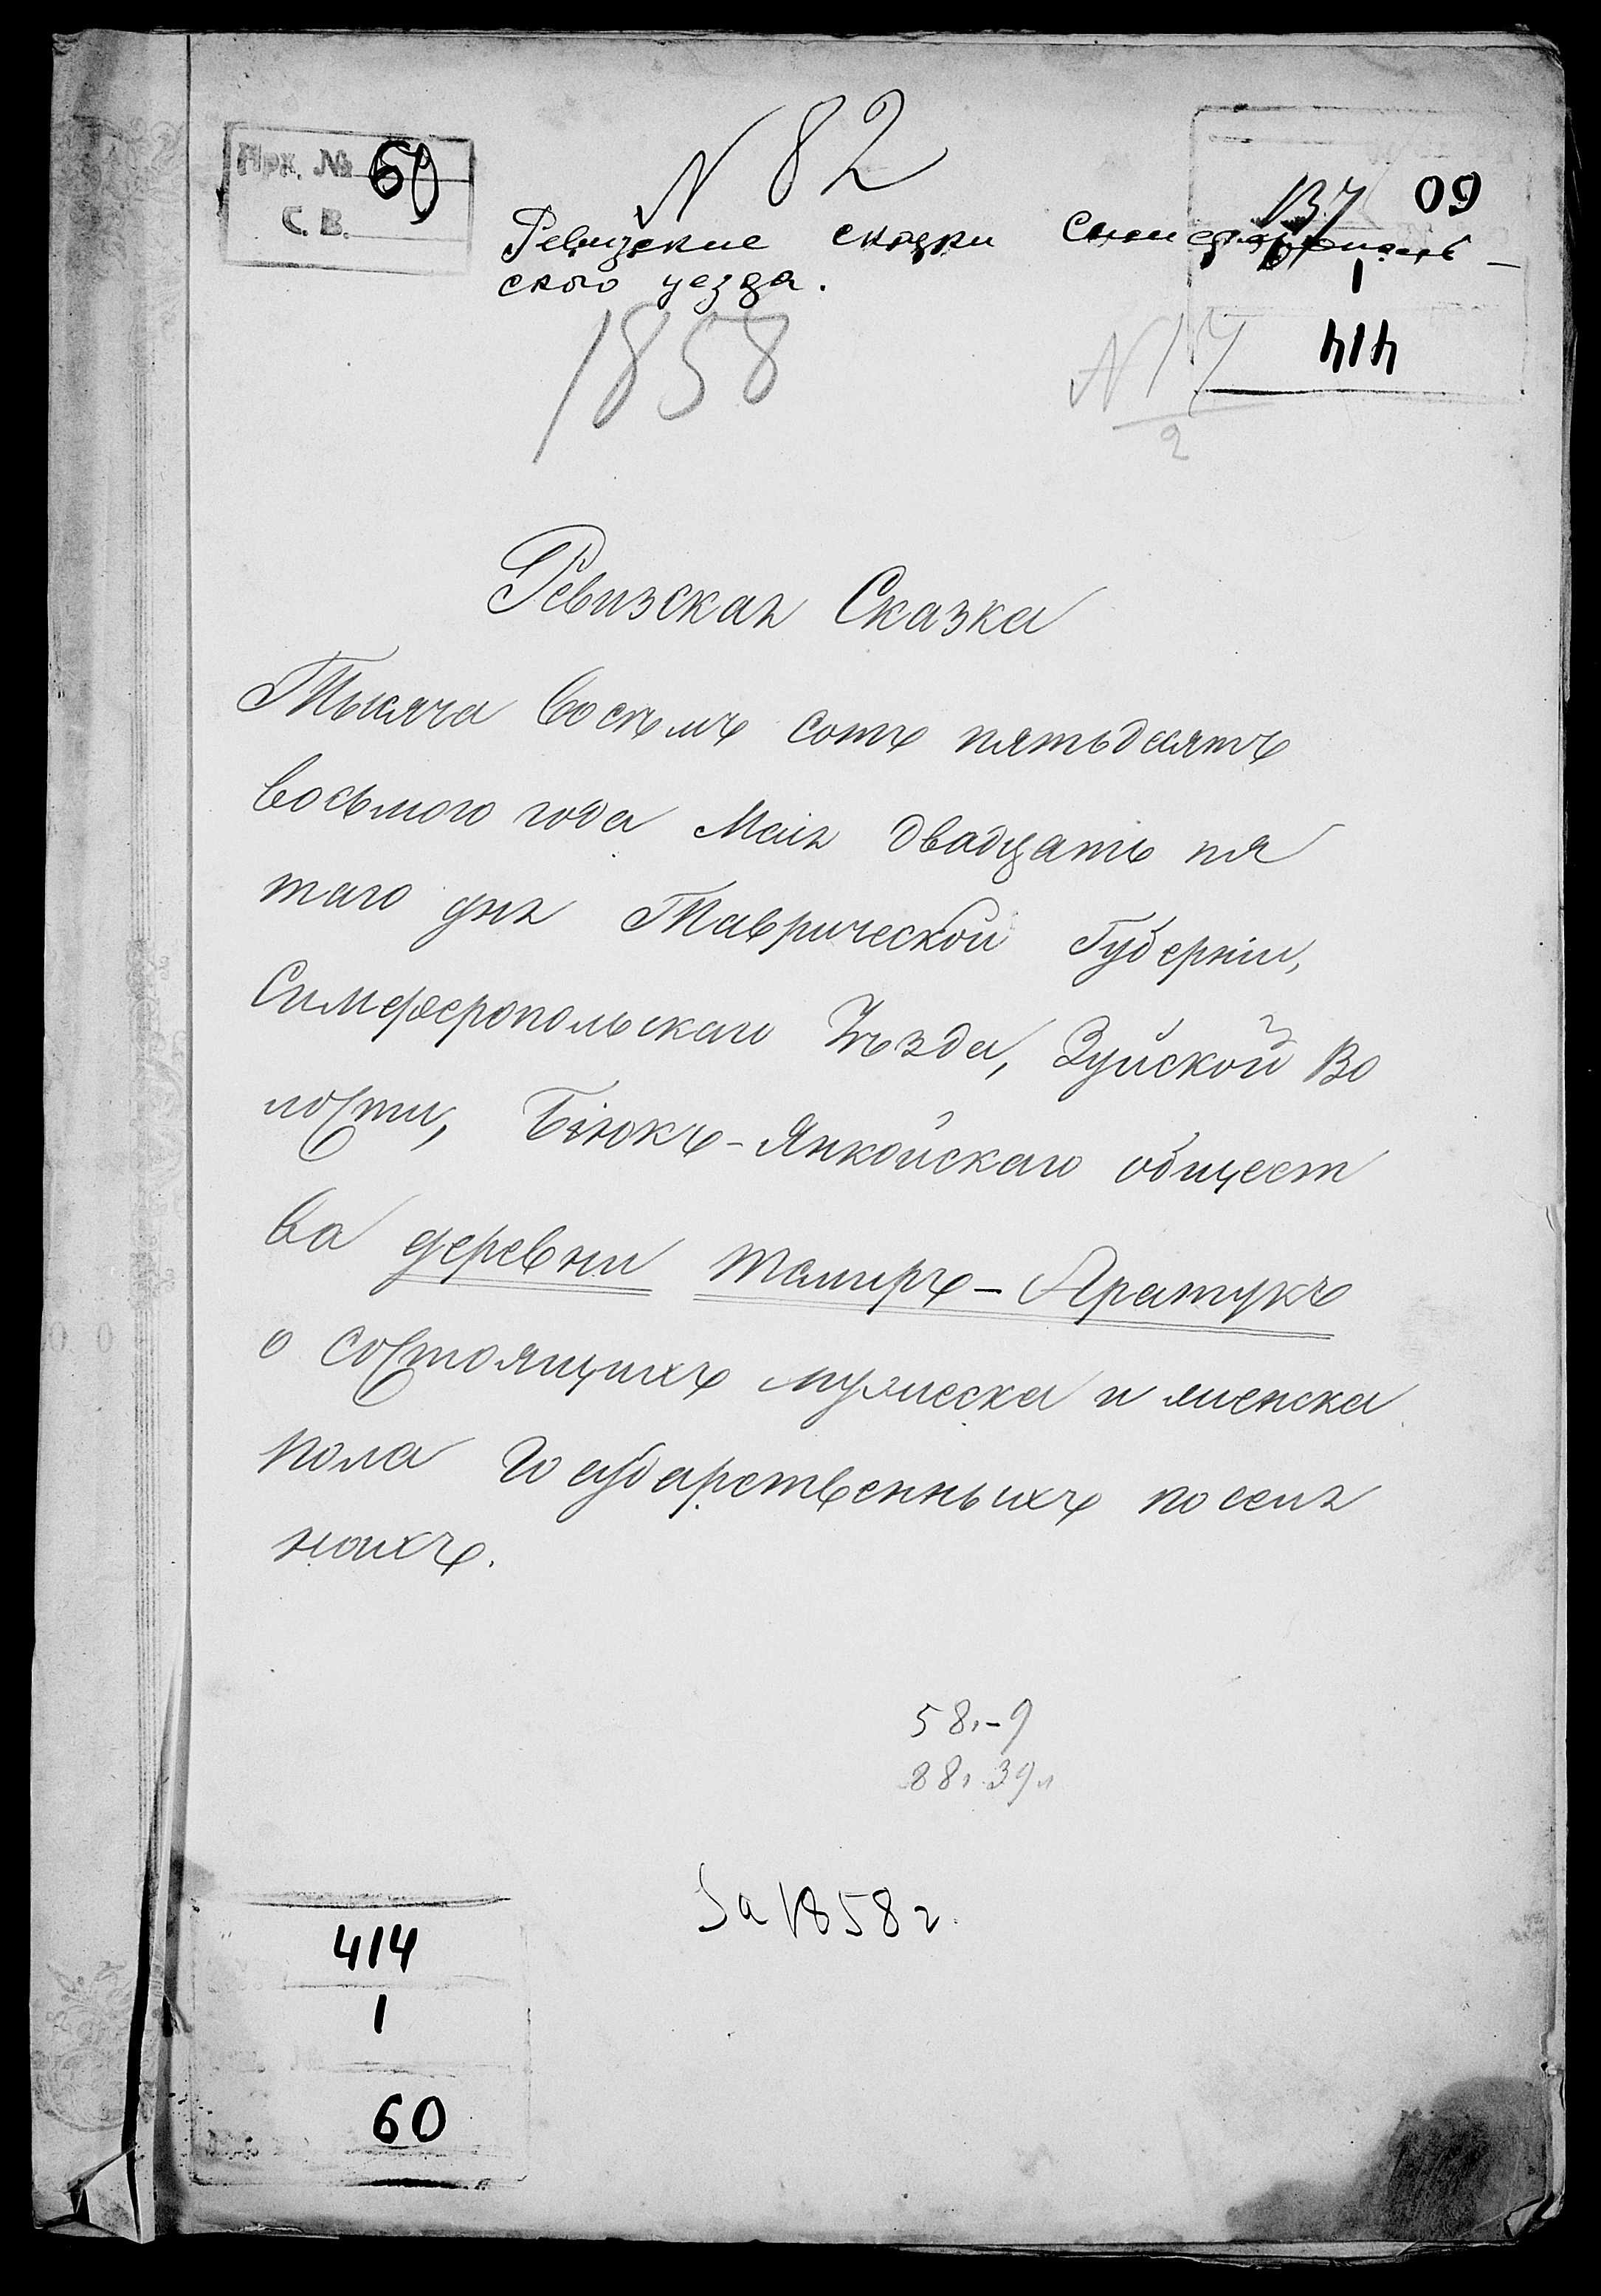 N 82
Арх. № 60
С. В.
137
60
Ревизские сказки Симферополь-
ского уезда.
1
414
1858
N 17
2
Ревизская Сказка
Тысяча восемъ сотъ пятьдесятъ
восьмого года Мая двадцать пя
таго дня Таврической Губерніи,
Симферопольскаго Уѣзда, Зуйской Во
лости, Біюкъ-Янкойскаго общест
ва деревни Тамиръ-Аратукъ
о состоящихъ мужеска и женска
пола Государственныхъ поселя
нахъ.
58.-9
88. 39л
За 1858 г.
414
1
60